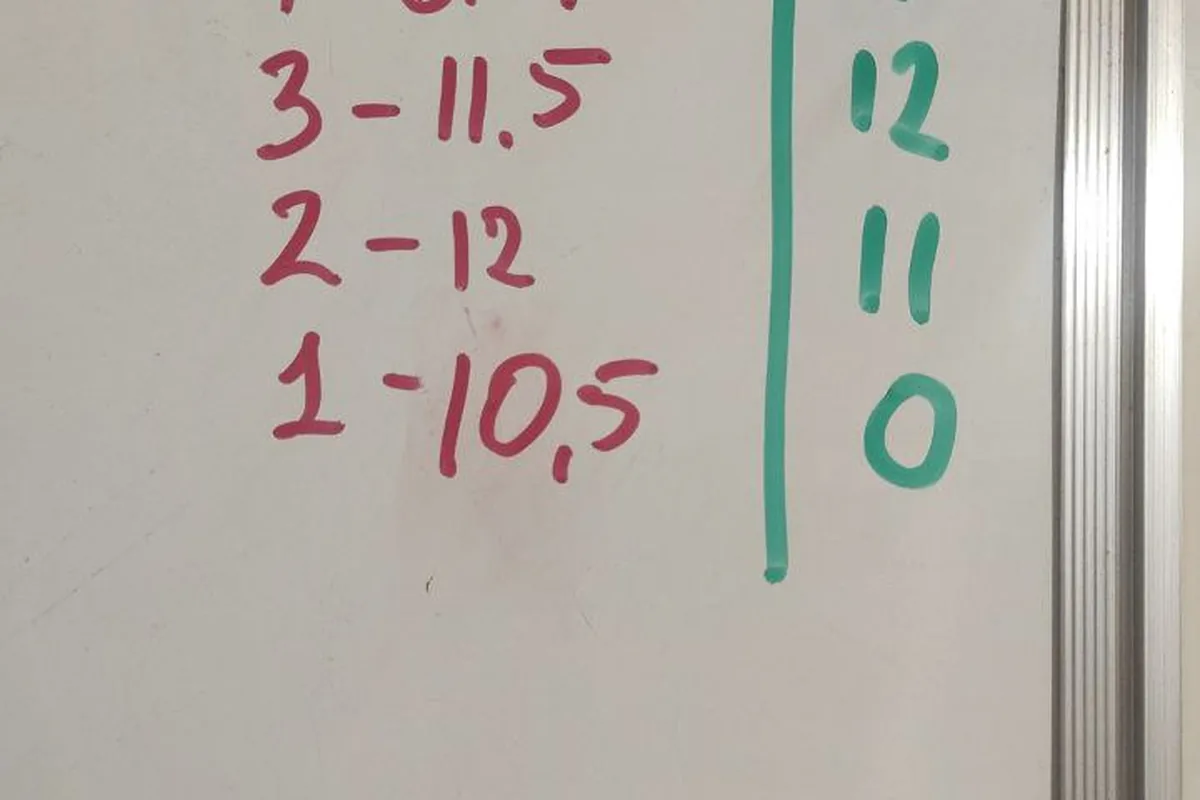 3 - 11.5
12
2 - 12
11
1 - 10,5
0